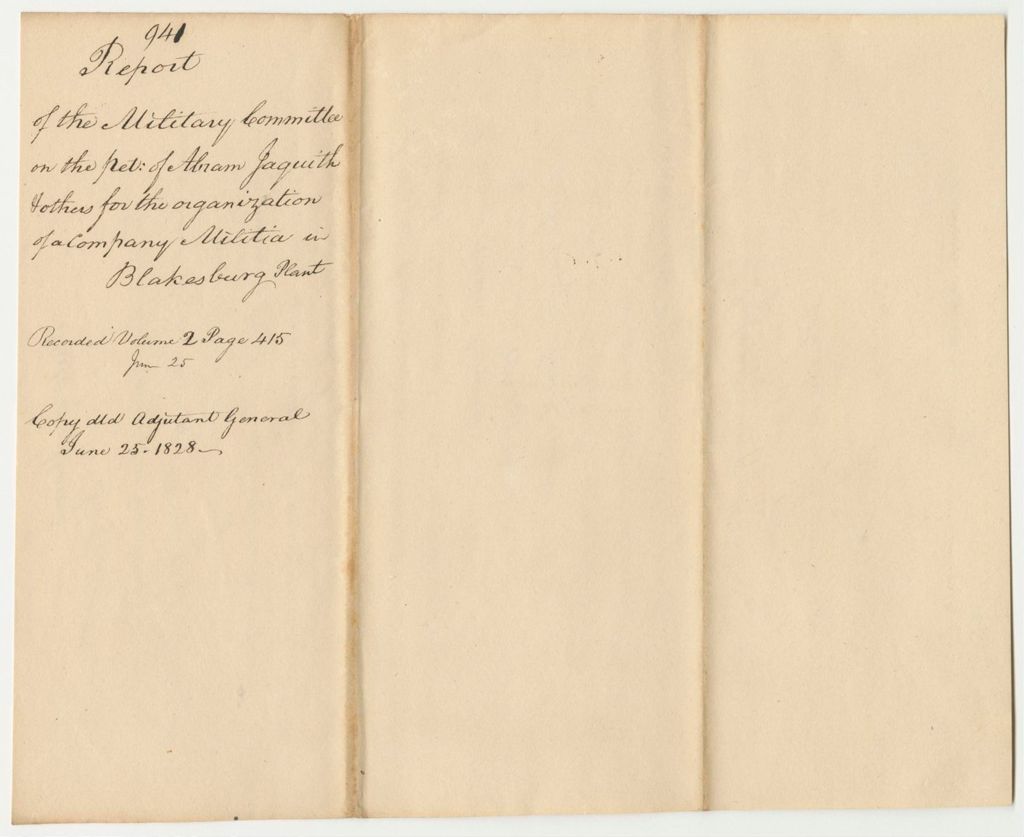 941
Report
of the Military Committee
on the pet: of Abram Jaquith
& others for the organization
of a Company Militia in
Blakesburg Plant
Recorded Volume 2 Page 415
Jun 25
Copy dld Adjutant General
June 25 - 1828 -